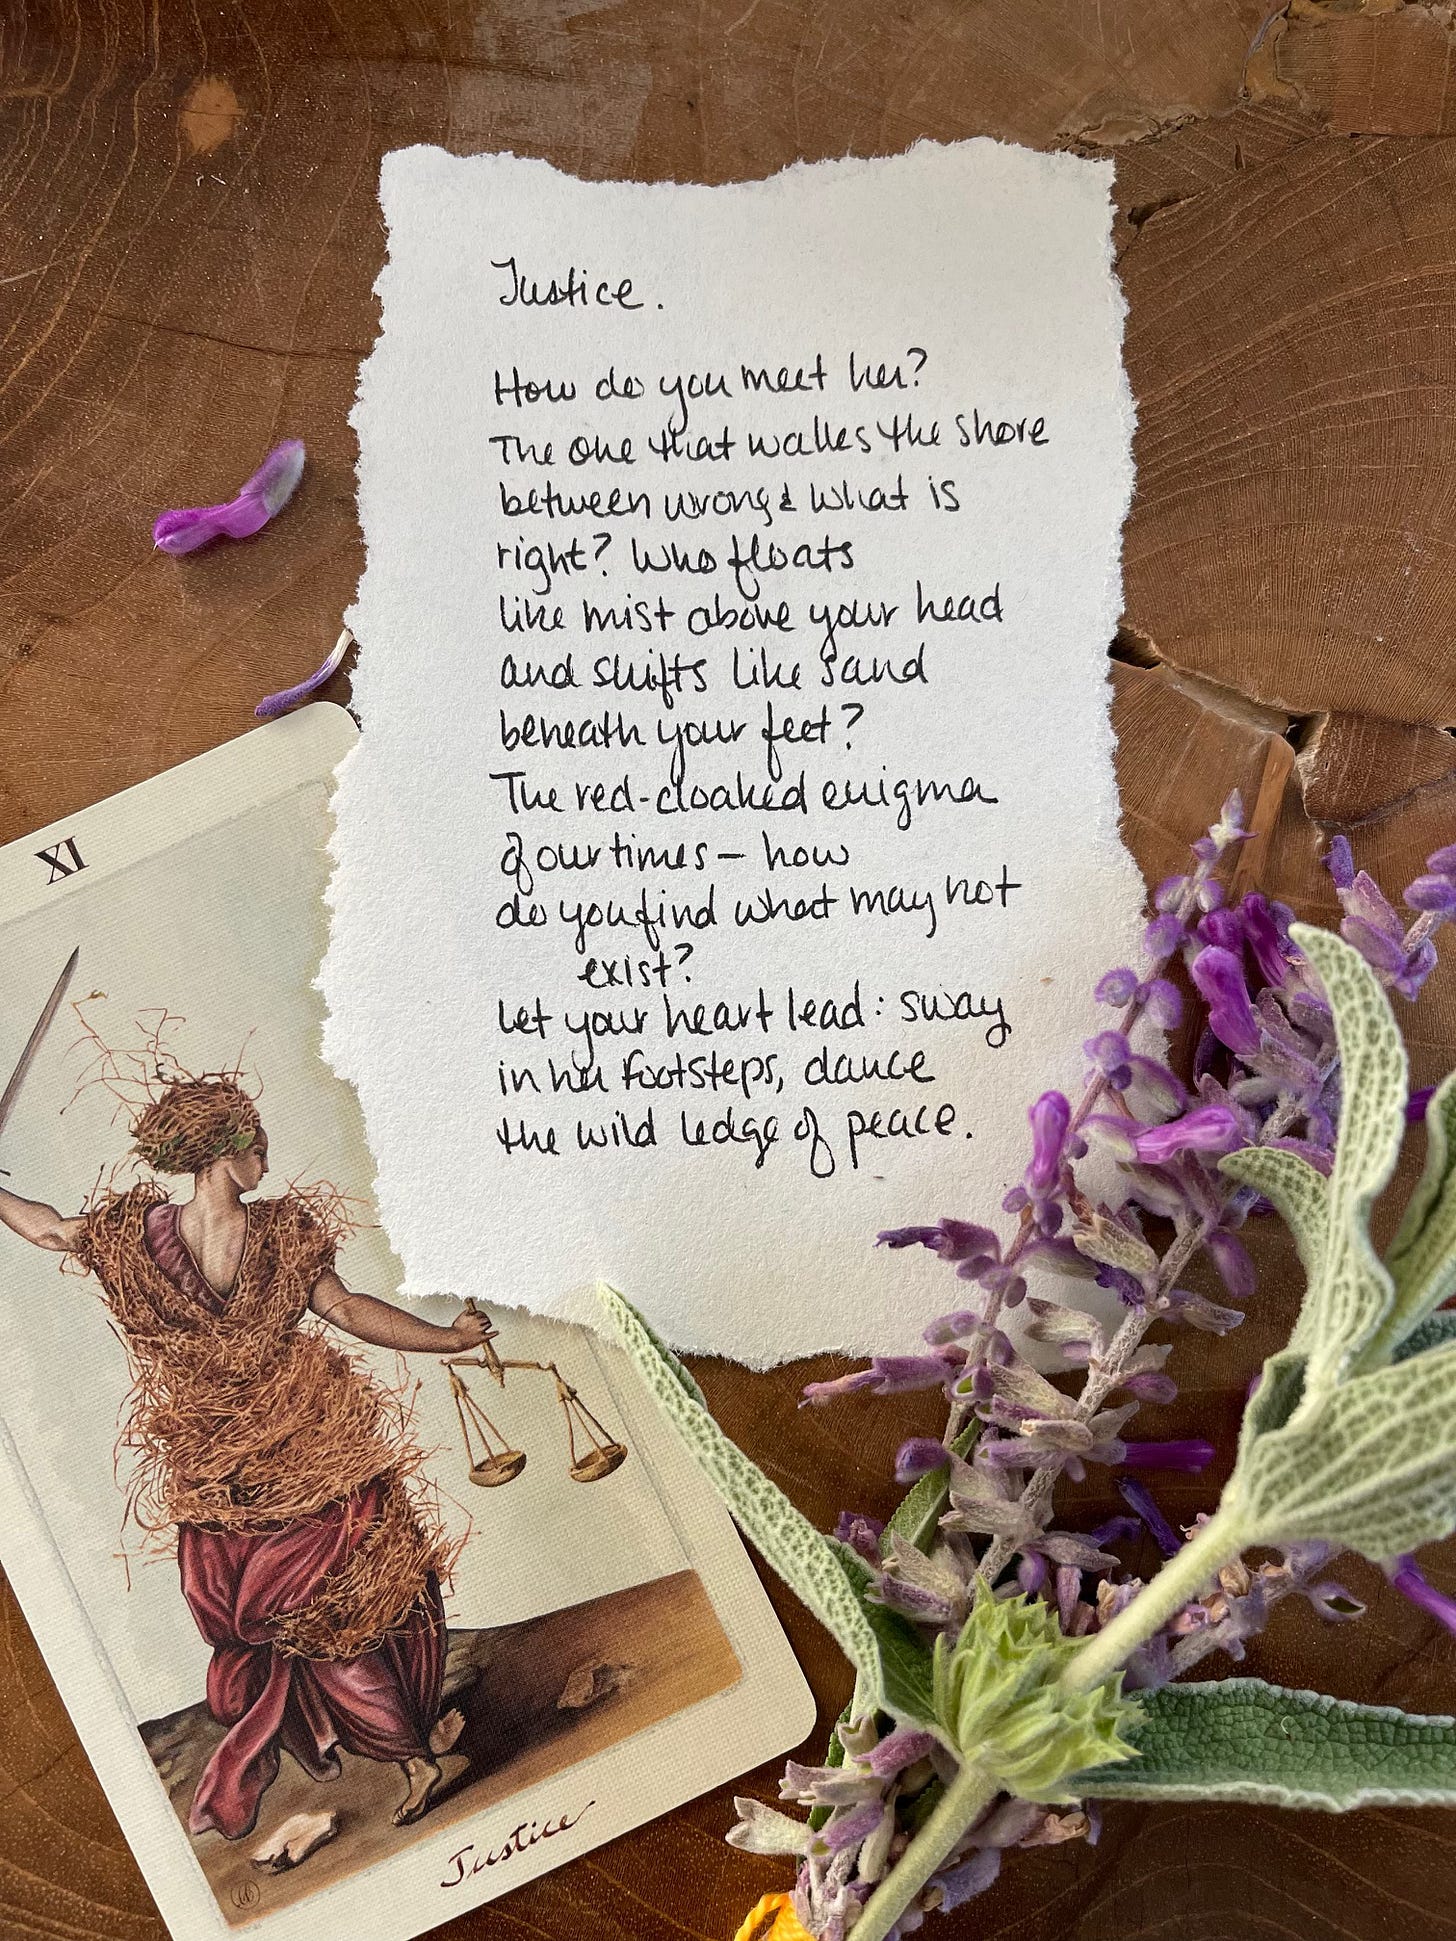 Justice.
How do you meet her?
The one that walks the shore
between wrong & what is
right? Who floats
like mist above your head
and shifts like sand
beneath your feet?
The red-cloaked enigma
of our times – how
do you find what may not
exist?
Let your heart lead: sway
in her footsteps, dance
the wild ledge of peace.
XI
Justice